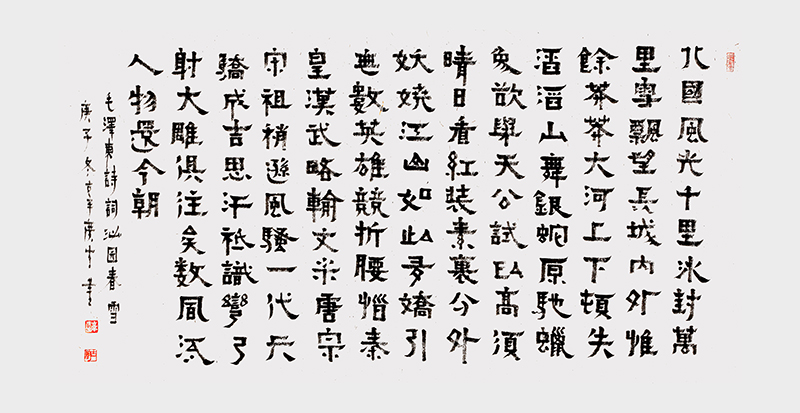 北國風光千里冰封萬
里雪飄望長城內外惟
餘莽莽大河上下頓失
滔滔山舞銀蛇原馳蠟
象欲與天公試比高須
晴日看紅裝素裹分外
妖嬈江山如此多嬌引
無數英雄競折腰惜秦
皇漢武略輸文采唐宗
宋祖稍遜風騷一代天
驕成吉思汗祇識彎弓
射大雕俱往矣數風流
人物還今朝
毛澤東詩詞沁園春雪
庚子冬